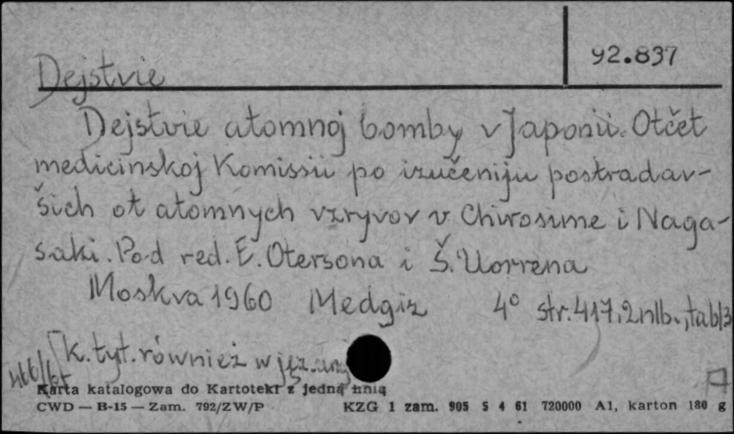 92.837
Dejstvie
Dejstvie atomnoj bomby v Japonii. Otčet
medicinskoj Komissii po izučeniju postradav-
šich ot atomnych vzryvov v Chirosime i Naga-
saki. Pod red. E. Otersona i Š. Uorrena
Moskva 1960 Medgiz 4° str. 417, 2 nlb., tabl 3
K. tyt. również w jęz. ang
466/61
Karta katalogowa do Kartoteki z jedną linią
CWD — B-15 — Zam. 792/ZW/P KZG 1 zam. 905 S 4 61 720000 A1, karton 180 g